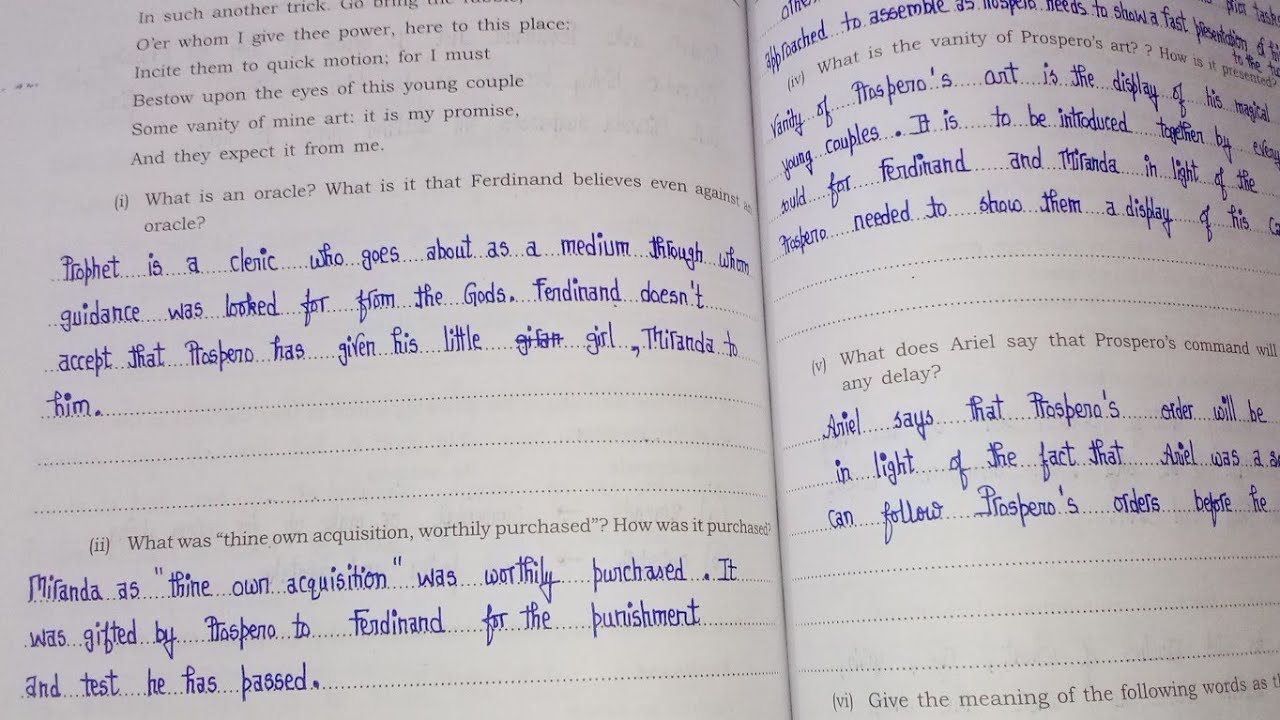 In such another trick. Go bring the rabble,
O'er whom I give thee power, here to this place:
Incite them to quick motion; for I must
Bestow upon the eyes of this young couple
Some vanity of mine art: it is my promise,
And they expect it from me.
(i) What is an oracle? What is it that Ferdinand believes even against an
oracle?
Prophet is a cleric who goes about as a medium through whom
guidance was looked for from the Gods. Ferdinand doesn't
accept that Prospero has given his little girl, Miranda to
him.
(ii) What was "thine own acquisition, worthily purchased"? How was it purchased?
Miranda as "thine own acquisition" was worthily purchased. It
was gifted by Prospero to Ferdinand for the punishment
and test he has passed.
approached to assemble as Prospero needs to show a fast presentation of
to the
(iv) What is the vanity of Prospero's art? ? How is it presented?
Vanity of Prospero's art is the display of his magical
young couples. It is to be introduced together by
could for Ferdinand and Miranda in light of the
Prospero needed to show them a display of his
(v) What does Ariel say that Prospero's command will
any delay?
Ariel says that Prospero's order will be
in light of the fact that Ariel was a
can follow Prospero's orders before he
(vi) Give the meaning of the following words as